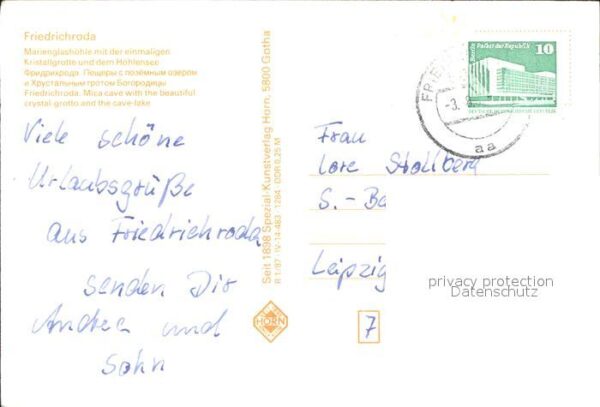 Friedrichroda
Marienglashöhle mit der einmaligen
Kristallgrotte und dem Höhlensee
Фридрихрода. Пещеры с поземным озером
и Хрустальным гротом Богородицы
Friedrichroda. Mica cave with the beautiful
crystal-grotto and the cave-lake
Viele schöne
Urlaubsgrüße
aus Friedrichroda
senden Dir
Andrea und
Sohn
Seit 1898 Spezial-Kunstverlag Horn, 5800 Gotha
R 1/87 · IV-14-483 · 1284 · DDR 0,25 M
HORN
Berlin, Palast der Republik
10
aa
Frau
Lore Stollberg
S.-Ba
Leipzig
7
privacy protection
Datenschutz